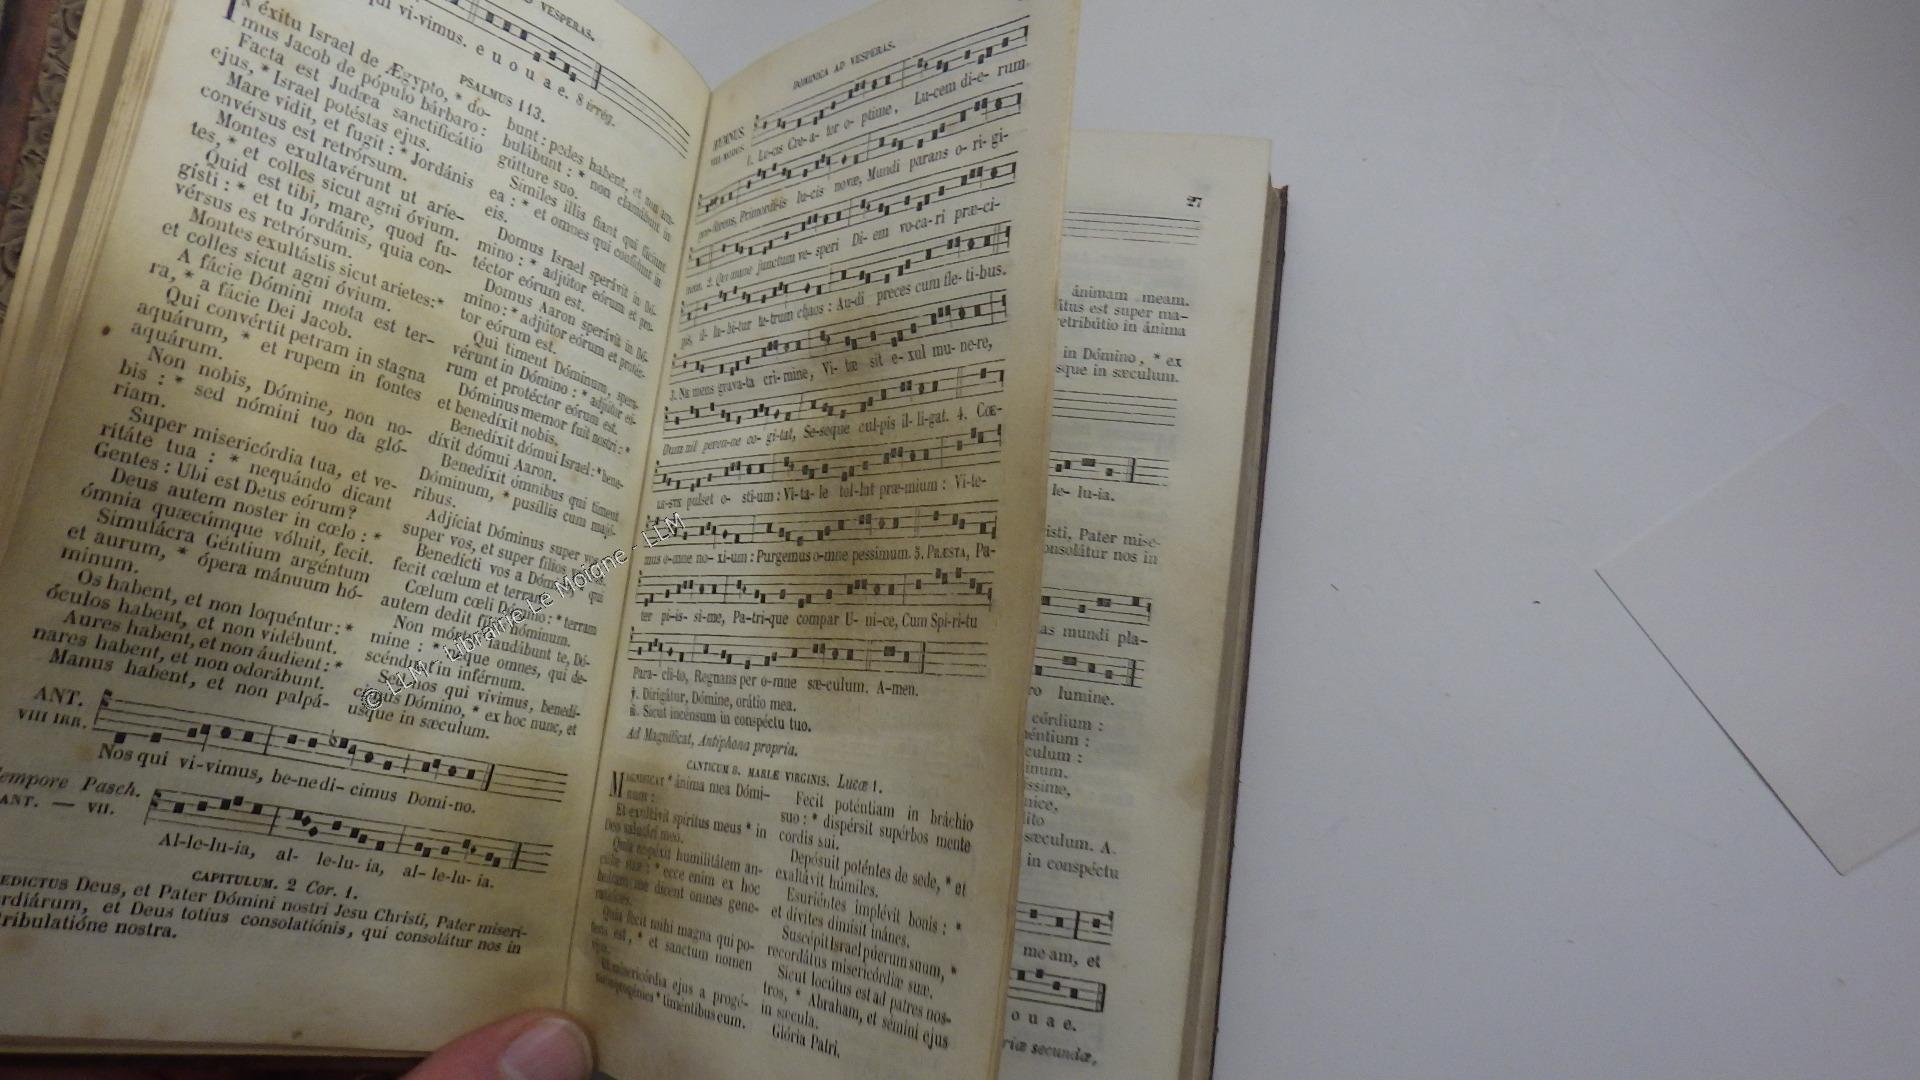 AD VESPERAS.
qui vi-vimus. e u o u a e. 8 irrég.
PSALMUS 113.
IN éxitu Israel de Ægypto, * do-
mus Jacob de pópulo bárbaro:
Facta est Judæa sanctificátio
ejus, * Israel potéstas ejus.
Mare vidit, et fugit : * Jordánis
convérsus est retrórsum.
Montes exultavérunt ut arie-
tes, * et colles sicut agni óvium.
Quid est tibi, mare, quod fu-
gísti : * et tu Jordánis, quia con-
vérsus es retrórsum.
Montes exultástis sicut arietes:*
et colles sicut agni óvium.
A fácie Dómini mota est ter-
ra, * a fácie Dei Jacob.
Qui convértit petram in stagna
aquárum, * et rupem in fontes
aquárum.
Non nobis, Dómine, non no-
bis : * sed nómini tuo da gló-
riam.
Super misericórdia tua, et ve-
ritáte tua : * nequándo dicant
Gentes : Ubi est Deus eórum?
Deus autem noster in cœlo : *
ómnia quæcúmque vóluit, fecit.
Simulácra Géntium argéntum
et aurum, * ópera mánuum hó-
minum.
Os habent, et non loquéntur : *
óculos habent, et non vidébunt.
Aures habent, et non áudient : *
nares habent, et non odorábunt.
Manus habent, et non palpá-
bunt : pedes habent, et non am-
bulábunt : * non clamábunt in
gútture suo.
Símiles illis fiant qui fáciunt
ea : * et omnes qui confídunt in
eis.
Domus Israel sperávit in Dó-
mino : * adjútor eórum et pro-
téctor eórum est.
Domus Aaron sperávit in Dó-
mino : * adjútor eórum et protéc-
tor eórum est.
Qui timent Dóminum, spera-
vérunt in Dómino : * adjútor eó-
rum et protéctor eórum est.
Dóminus memor fuit nostri : *
et benedíxit nobis.
Benedíxit dómui Israel : * bene-
díxit dómui Aaron.
Benedíxit ómnibus qui timent
Dóminum, * pusíllis cum majó-
ribus.
Adjíciat Dóminus super vos
super vos, et super fílios
Benedícti vos a Dómino qui
fecit cœlum et terram.
Cœlum cœli Dómino : * terram
autem dedit fíliis hóminum.
Non mórtui laudábunt te, Dó-
mine : * neque omnes, qui de-
scéndunt in inférnum.
Sed nos qui vívimus, benedí-
cimus Dómino, * ex hoc nunc, et
usque in sæculum.
ANT.
VIII IRR.
Nos qui vi-vimus, be-nedi- cimus Domi-no.
Tempore Pasch.
ANT. — VII.
Al-le-lu-ia, al- le-lu- ia, al- le-lu- ia.
CAPITULUM. 2 Cor. 1.
EDICTUS Deus, et Pater Dómini nostri Jesu Christi, Pater miseri-
rdiárum, et Deus totíus consolatiónis, qui consolátur nos in
tribulatióne nostra.
DOMINICA AD VESPERAS.
HYMNUS.
VIII MODUS.
1. Lu-cis Cre-a- tor o- ptime, Lu-cem di-e- rum
pro-ferens, Primordi-is lu-cis novæ, Mundi parans o- ri- gi-
nem. 2. Qui mane junctum ve- speri Di- em vo-ca-ri præ-ci-
pis, il- la- bi-tur te-trum chaos : Au-di preces cum fle- ti-bus.
3. Ne mens grava-ta cri-mine, Vi- tæ sit e- xul mu-ne-re,
Dum nil peren-ne co- gi-tat, Se-seque cul-pis il- li-gat. 4. Cœ-
le-ste pulset o- sti-um : Vi-ta- le tol-lat præ-mium : Vi-te-
mus o-mne no- xi-um : Purgemus o-mne pessimum. 5. Præsta, Pa-
ter pi-is- si-me, Pa-tri-que compar U- ni-ce, Cum Spi-ri-tu
Para- cli-to, Regnans per o-mne sæ-culum. A-men.
℣. Dirigátur, Dómine, orátio mea.
℟. Sicut incénsum in conspéctu tuo.
Ad Magníficat, Antiphona propria.
CANTICUM B. MARIÆ VIRGINIS. Lucæ 1.
MAGNIFICAT * ánima mea Dómi-
num :
Et exultávit spíritus meus * in
Deo salutári meo.
Quia respéxit humilitátem an-
cíllæ suæ : * ecce enim ex hoc
beátam me dicent omnes gene-
ratiónes.
Quia fecit mihi magna qui po-
tens est, * et sanctum nomen
ejus.
Et misericórdia ejus a progé-
nie in progénies * timéntibus eum.
Fecit poténtiam in bráchio
suo : * dispérsit supérbos mente
cordis sui.
Depósuit poténtes de sede, * et
exaltávit húmiles.
Esuriéntes implévit bonis : *
et dívites dimísit inánes.
Suscépit Israel púerum suum, *
recordátus misericórdiæ suæ.
Sicut locútus est ad patres nos-
tros, * Abraham, et sémini ejus
in sæcula.
Glória Patri.
27
ánimam meam.
átus est super ma-
retribútio in ánima
in Dómino, * ex
sque in sæculum.
le- lu-ia.
isti, Pater mise-
onsolátur nos in
as mundi pla-
ro lumine.
córdium :
éntium :
culum :
inum.
íssime,
nice,
lito
sæculum. A.
in conspéctu
me am, et
o u a e.
riæ secundæ,
© LLM - Librairie Le Moigne - LLM